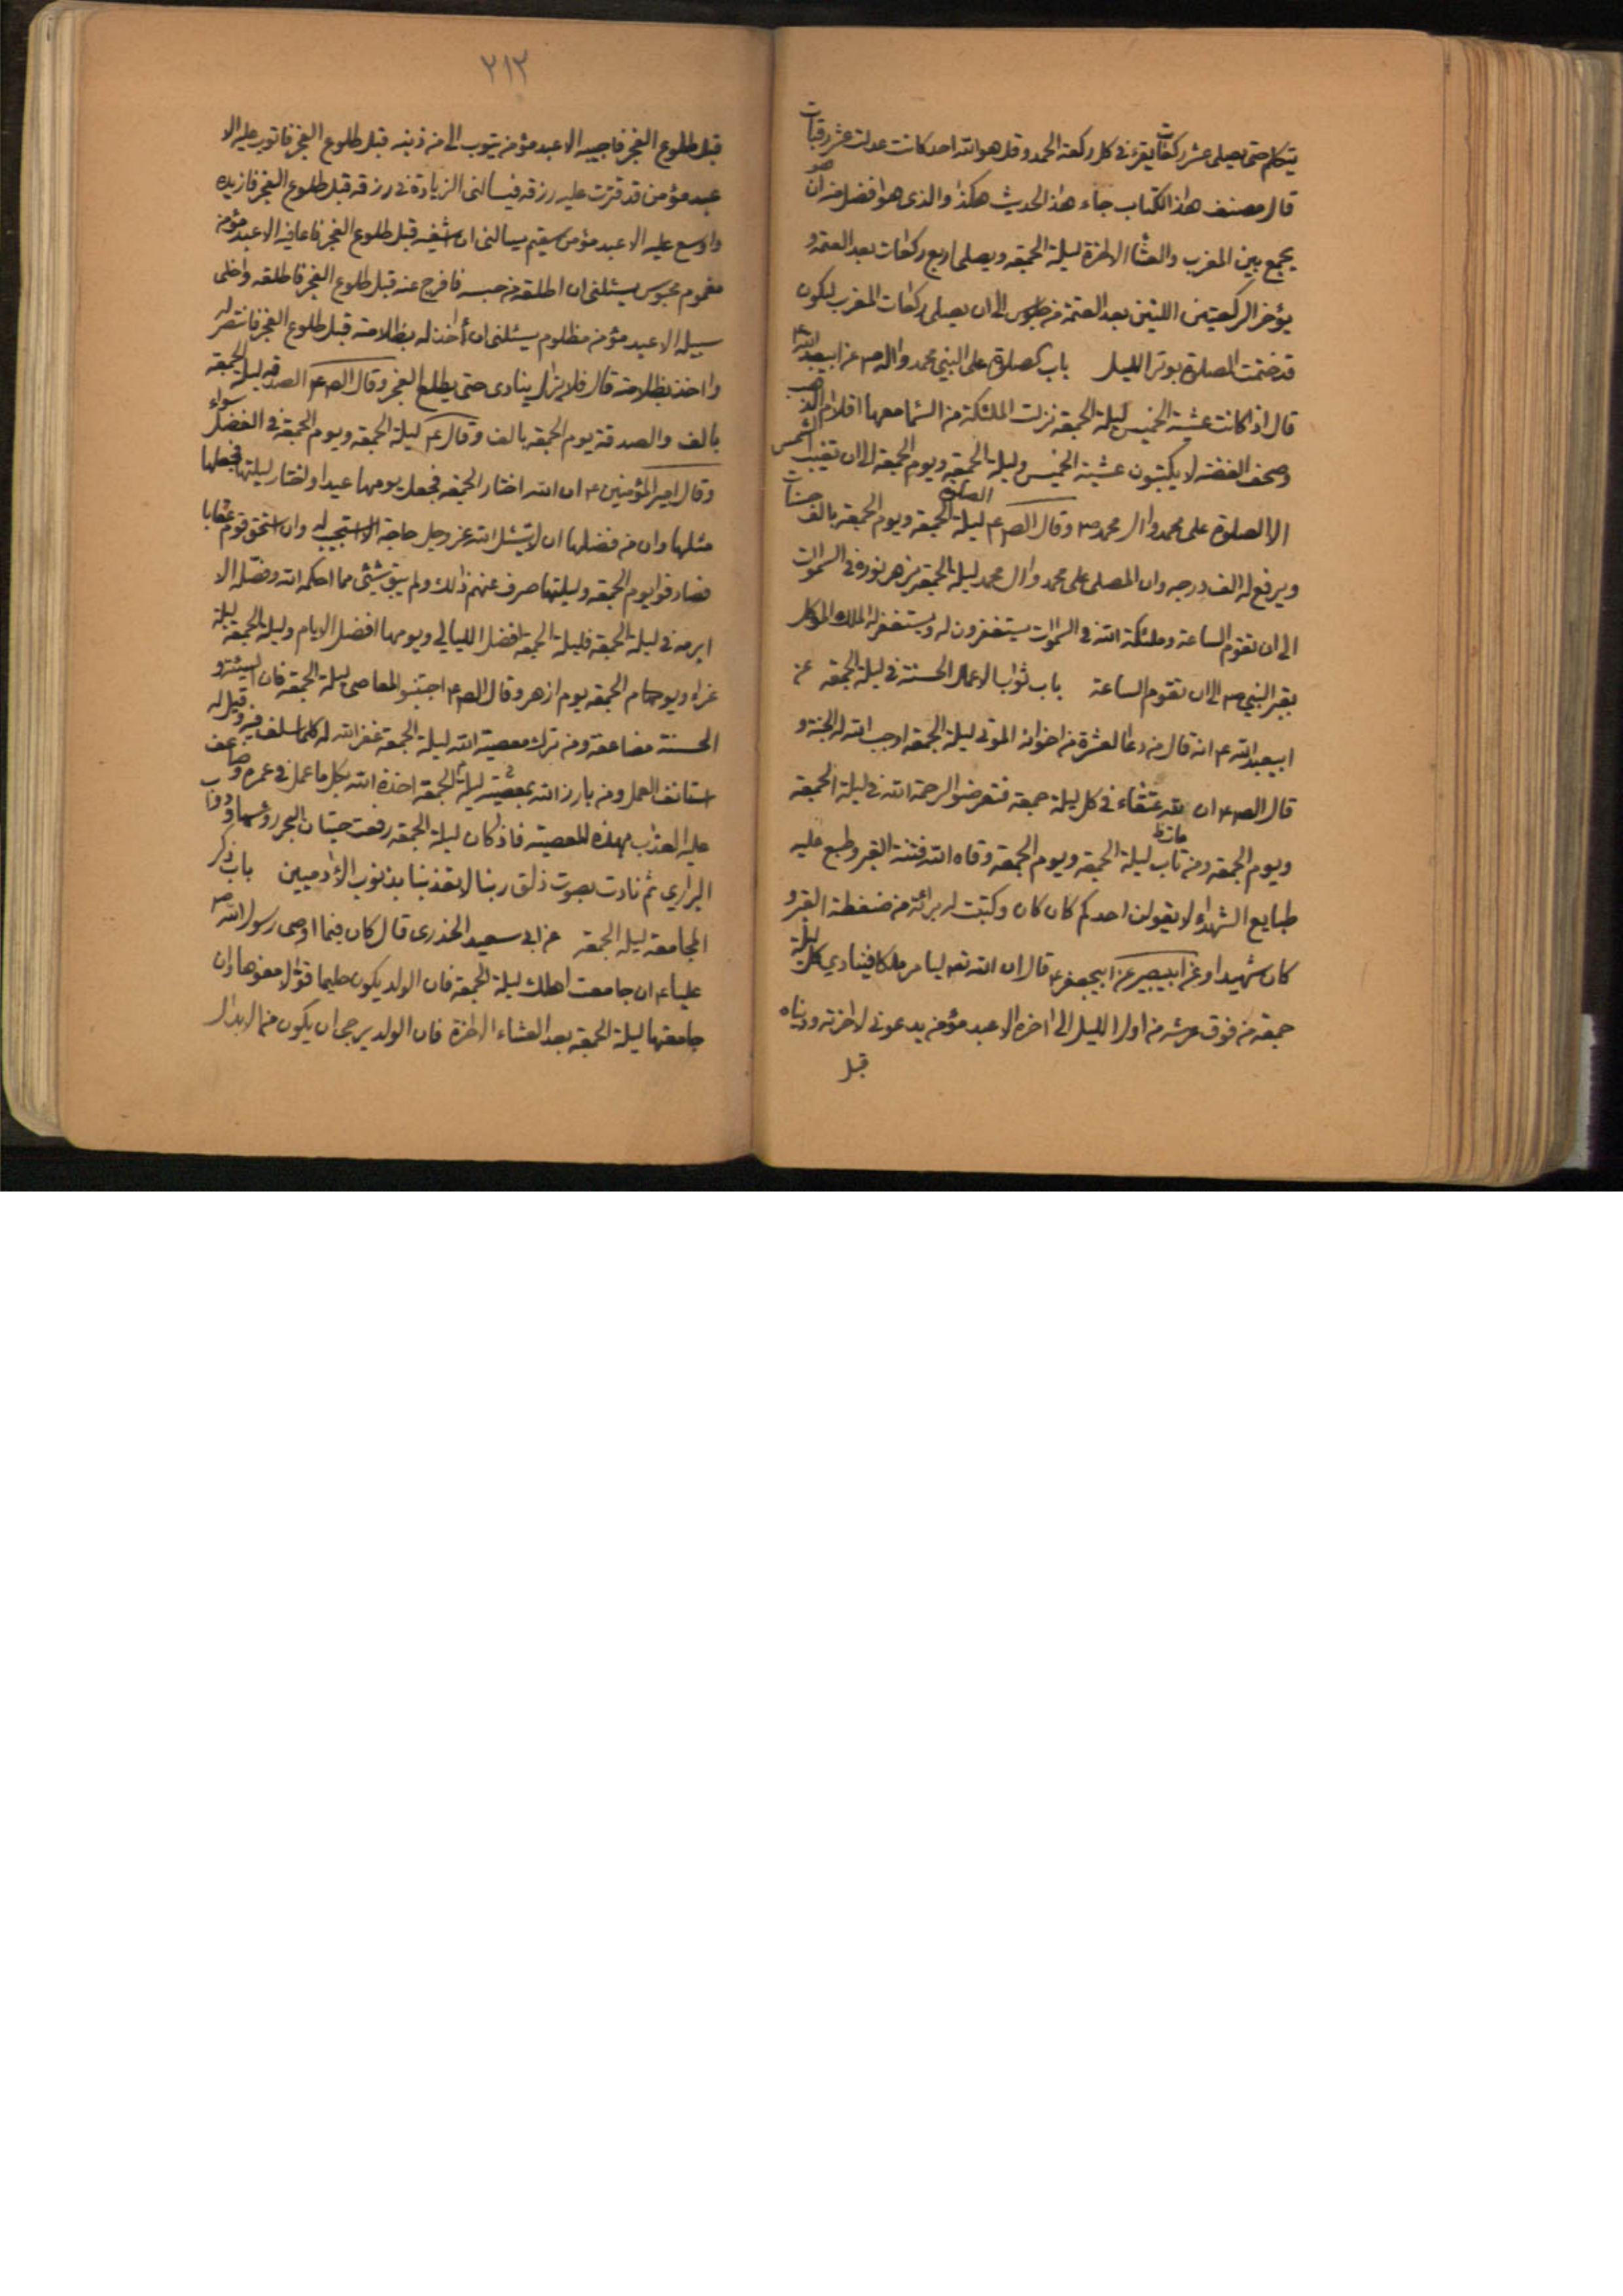 يتكلم حتى يصلى عشر ركعات يقرء فى كل ركعة الحمد وقل هو الله احد كانت عدلت عشر رقبات
قال مصنف هذا الكتاب جاء هذا الحديث هكذا والذى هو افضل منه ان
يجمع بين المغرب والعشا الاخرة ليلة الجمعة ويصلى اربع ركعات بعد العتمة و
يؤخر الركعتين اللتين بعد العتمة من جلوس الى ان يصلى ركعات المغرب ليكون
قد ختمت الصلوة بوتر الليل باب الصلوة على النبي محمد واله ص عن ابيعبد الله ع
قال اذا كانت عشية الخميس ليلة الجمعة نزلت الملئكة من السما معها اقلام الذهب
وصحف الفضة لا يكتبون عشية الخميس وليلة الجمعة ويوم الجمعة الى ان تغيب الشمس
الا الصلوة على محمد وال محمد ص وقال الص ع الصلوة ليلة الجمعة ويوم الجمعة بالف حسنات
ويرفع له الف درجه وان المصلى على محمد وال محمد ليلة الجمعة يزهر نوره فى السموات
الى ان تقوم الساعة وملئكة الله فى السموات يستغفرون له ويستغفر له الملك الموكل
بقبر النبي ص الى ان تقوم الساعة باب ثواب الاعمال الحسنة فى ليلة الجمعة عن
ابيعبد الله ع انه قال من دعا لعشرة من اخوانه الموتى ليلة الجمعة اوجب الله له الجنة و
قال الص ع ان لله عتقاء فى كل ليلة جمعة فتعرضوا لرحمة الله فى ليلة الجمعة
ويوم الجمعة ومن مات ليلة الجمعة ويوم الجمعة وقاه الله فتنة القبر وطبع عليه
طبايع الشهداء لا يقولن احدكم كان كان وكتبت له برائة من ضغطة القبر و
كان شهيدا وعن ابيبصير عن ابيجعفر ع قال ان الله تعه ليامر ملكا فينادي كل ليلة
جمعة من فوق عرشه من اول الليل الى اخره الا عبد مؤمن يدعونى لاخرته ودنياه
قبل
٢١٣
قبل طلوع الفجر فاجيبه الا عبد مؤمن يتوب الى من ذنبه قبل طلوع الفجر فاتوب عليه الا
عبد مؤمن قد قترت عليه رزقه فيسالنى الزيادة فى رزقه قبل طلوع الفجر فازيده
واوسع عليه الا عبد مؤمن سقيم يسالنى ان اشفيه قبل طلوع الفجر فاعافيه الا عبد مؤمن
مغموم محبوس يسئلنى ان اطلقه من حبسه فافرج عنه قبل طلوع الفجر فاطلقه واخلى
سبيله الا عبد مؤمن مظلوم يسئلنى ان أخذ له بظلامته قبل طلوع الفجر فانتصر له
واخذ بظلامته قال فلا يزال ينادى حتى يطلع الفجر وقال الص ع الصدقه ليلة الجمعة
بالف والصدقة يوم الجمعة بالف وقال ع ليلة الجمعة ويوم الجمعة فى الفضل سواء
وقال امير المؤمنين ع ان الله اختار الجمعة فجعل يومها عيدا واختار ليلتها فجعلها
مثلها وان من فضلها ان لا يسئل الله عز وجل حاجة الا استجيب له وان استحق قوم عقابا
فصادفوا يوم الجمعة وليلتها صرف عنهم ذلك ولم يبق شئى مما احكمه الله وفضله الا
ابرمه فى ليلة الجمعة فليلة الجمعة افضل الليالي ويومها افضل الايام وليلة الجمعة ليلة
غراء ويوم الجمعة يوم ازهر وقال الص ع اجتنبوا المعاصى ليلة الجمعة فان السيئة و
الحسنة مضاعفة ومن ترك معصية الله ليلة الجمعة غفر الله له كلما سلف فيه وقيل له
استانف العمل ومن بارز الله بمعصية ليلة الجمعة اخذه الله بكل ما عمل فى عمره وضاعف
عليه العذاب بهذه المعصية فاذا كان ليلة الجمعة رفعت حيتان البحر رؤسها ودواب
البرارى ثم نادت بصوت ذلق ربنا لا تعذبنا بذنوب الأدميين باب ذكر
المجامعة ليلة الجمعة عن ابى سعيد الخدرى قال كان فيما اوصى رسول الله ص
عليا ع ان جامعت اهلك ليلة الجمعة فان الولد يكون حليما قوالا مفوها وان
جامعتها ليلة الجمعة بعد العشاء الاخرة فان الولد يرجى ان يكون من الابدال